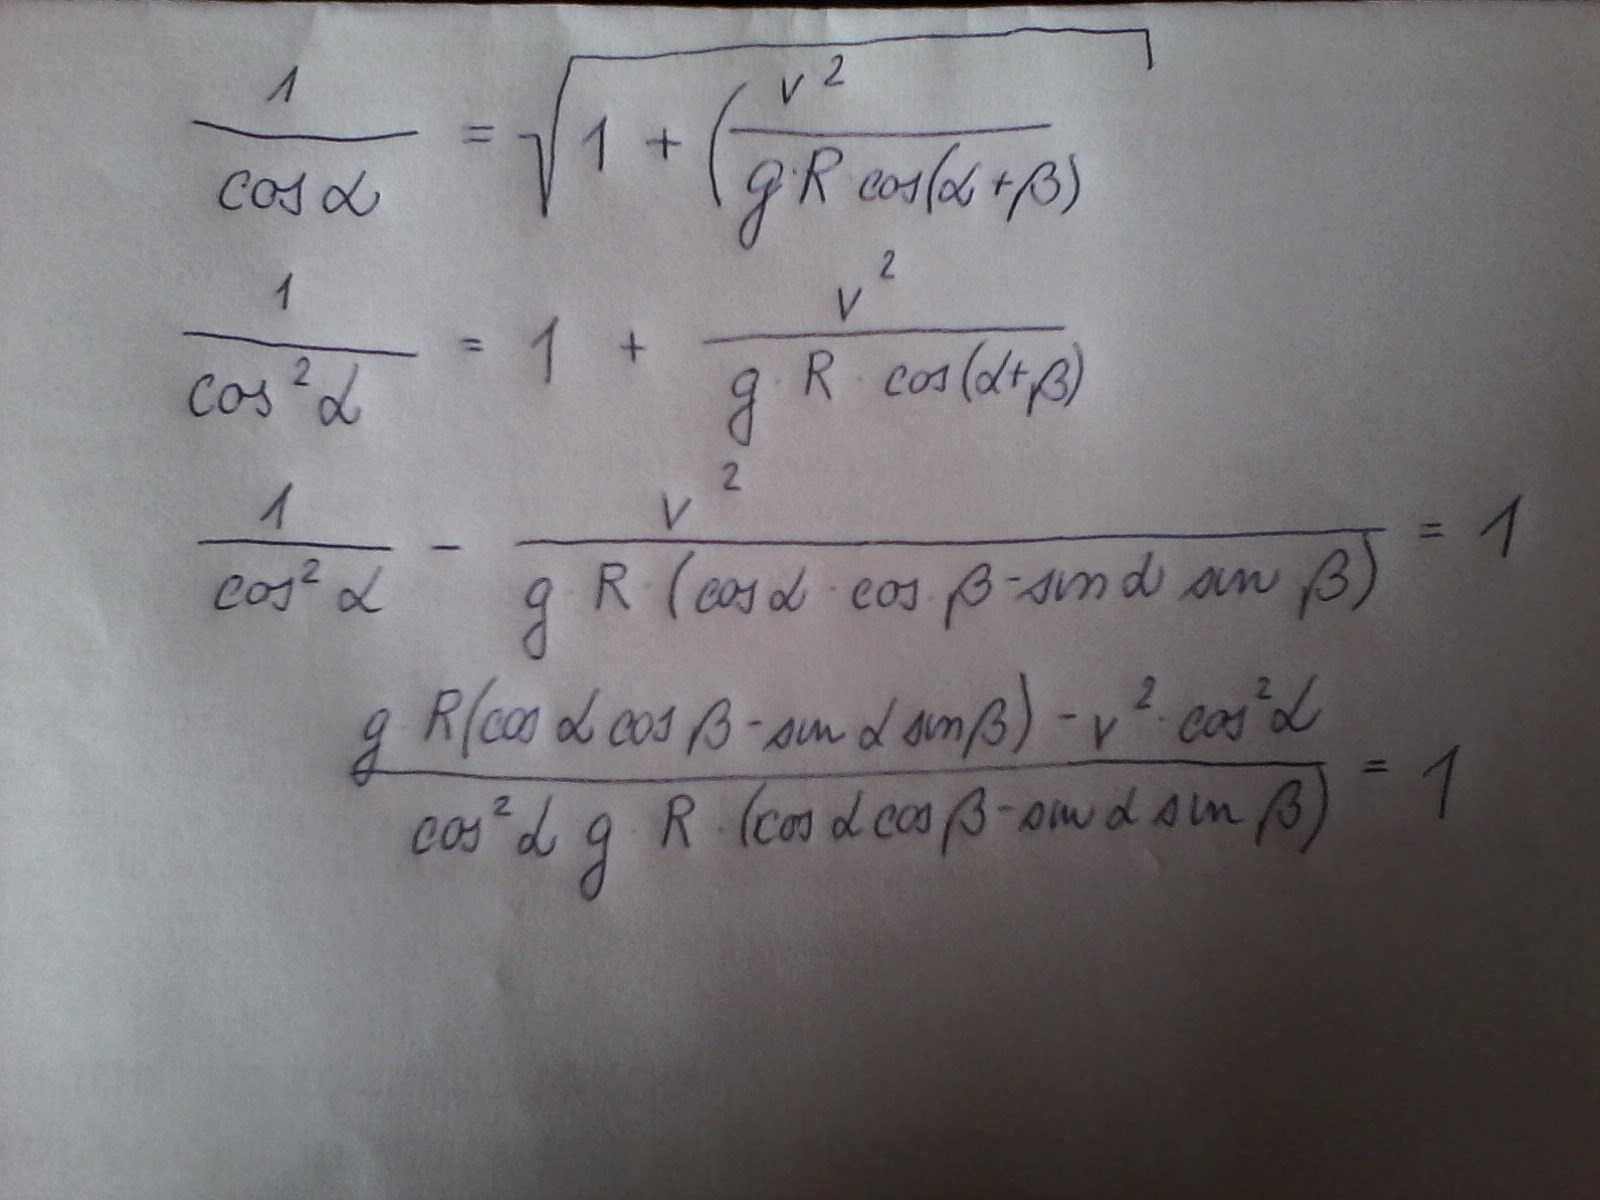 1/cos α = √(1 + (v²/(g·R cos(α+β)
1/cos²α = 1 + v²/(g·R·cos(α+β))
1/cos²α - v²/(g R·(cos α·cos β - sin α sin β)) = 1
(g R(cos α cos β - sin α sin β) - v²·cos²α)/(cos²α g R·(cos α cos β - sin α sin β)) = 1